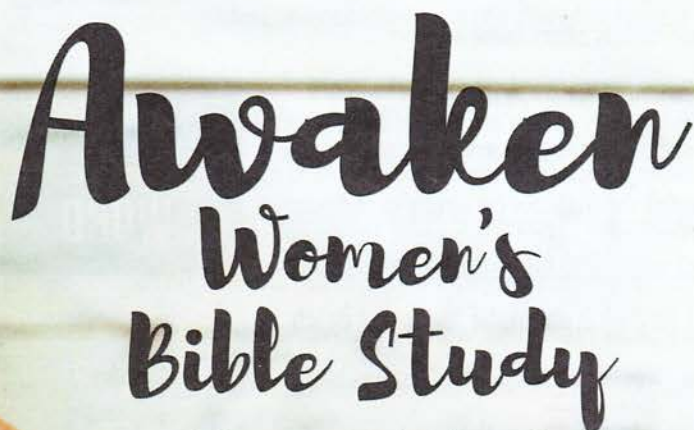 Awaken
Women's
Bible Study